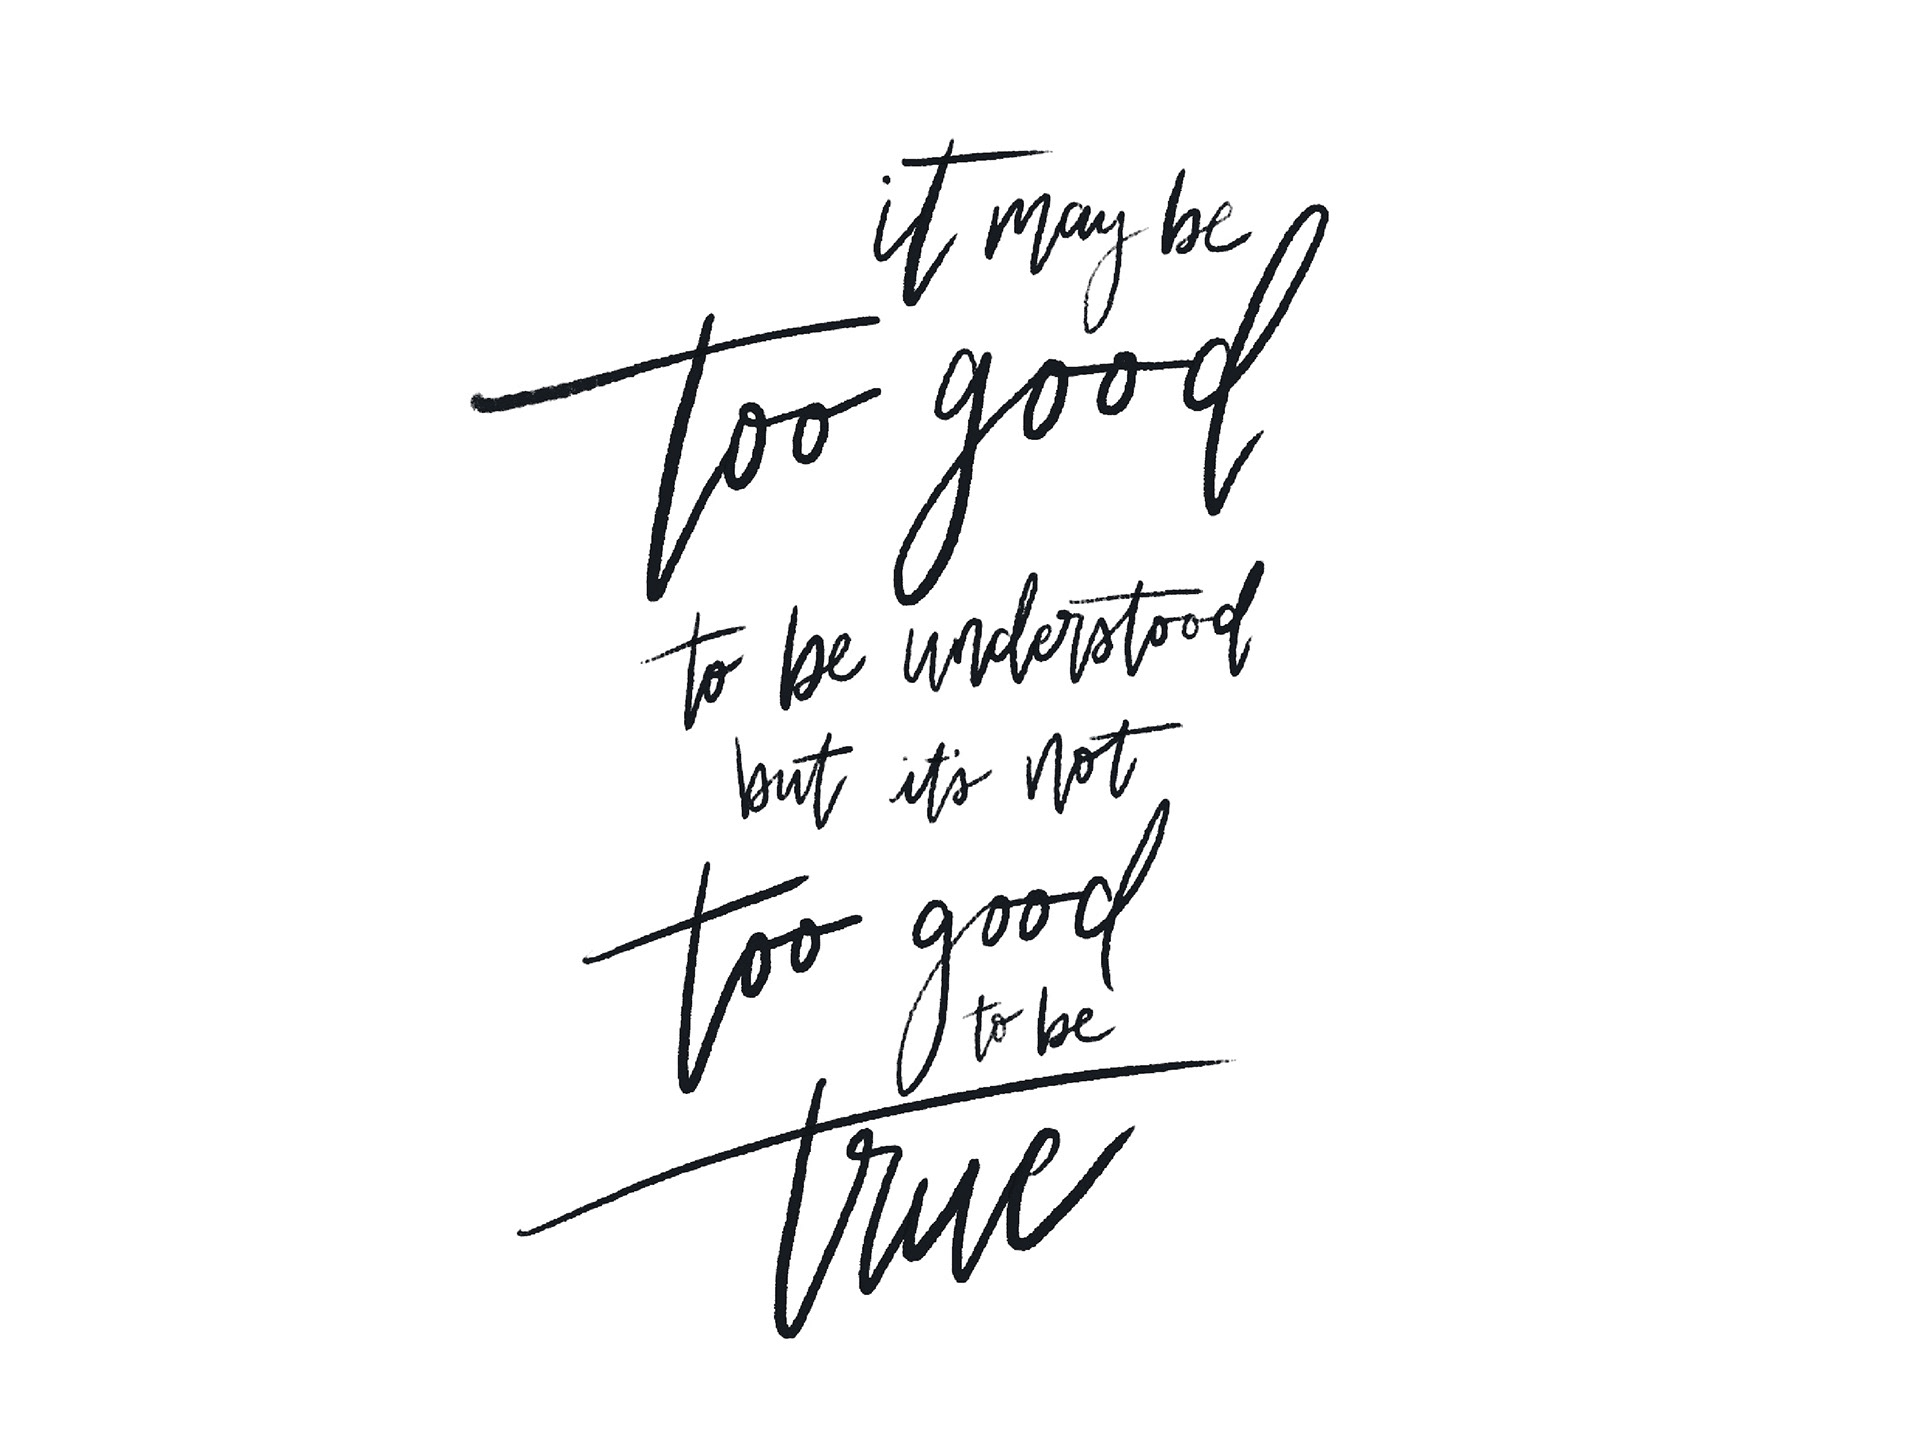 it may be
too good
to be understood
but it's not
too good
to be
true